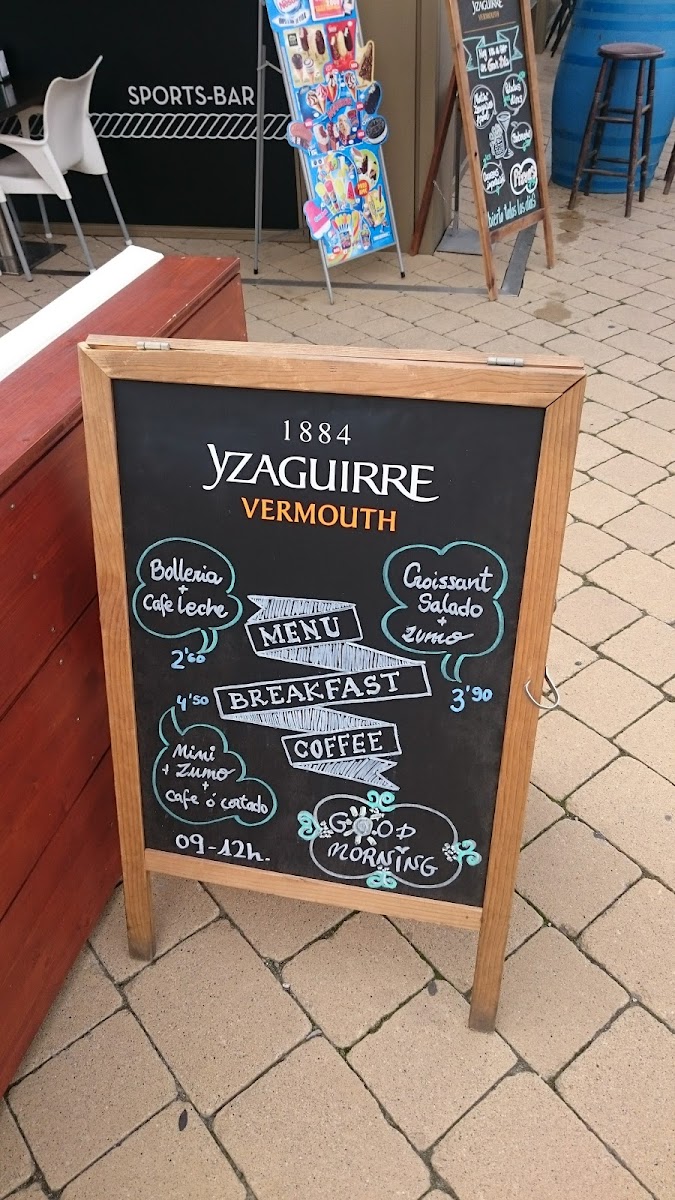 SPORTS-BAR
YZAGUIRRE
VERMOUTH
1884
YZAGUIRRE
VERMOUTH
Bolleria
+
Cafe Leche
2'60
Croissant
Salado
+
zumo
3'90
MENU
BREAKFAST
COFFEE
4'50
Mini
+ Zumo
+
cafe ó cortado
09-12h.
GOOD
MORNING